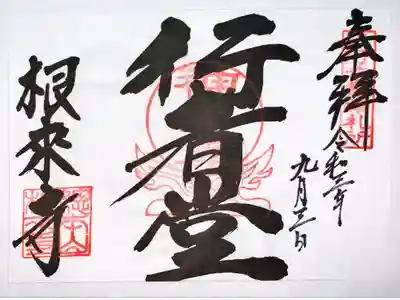 奉拝
令和三年
九月三日
行者堂
根来寺